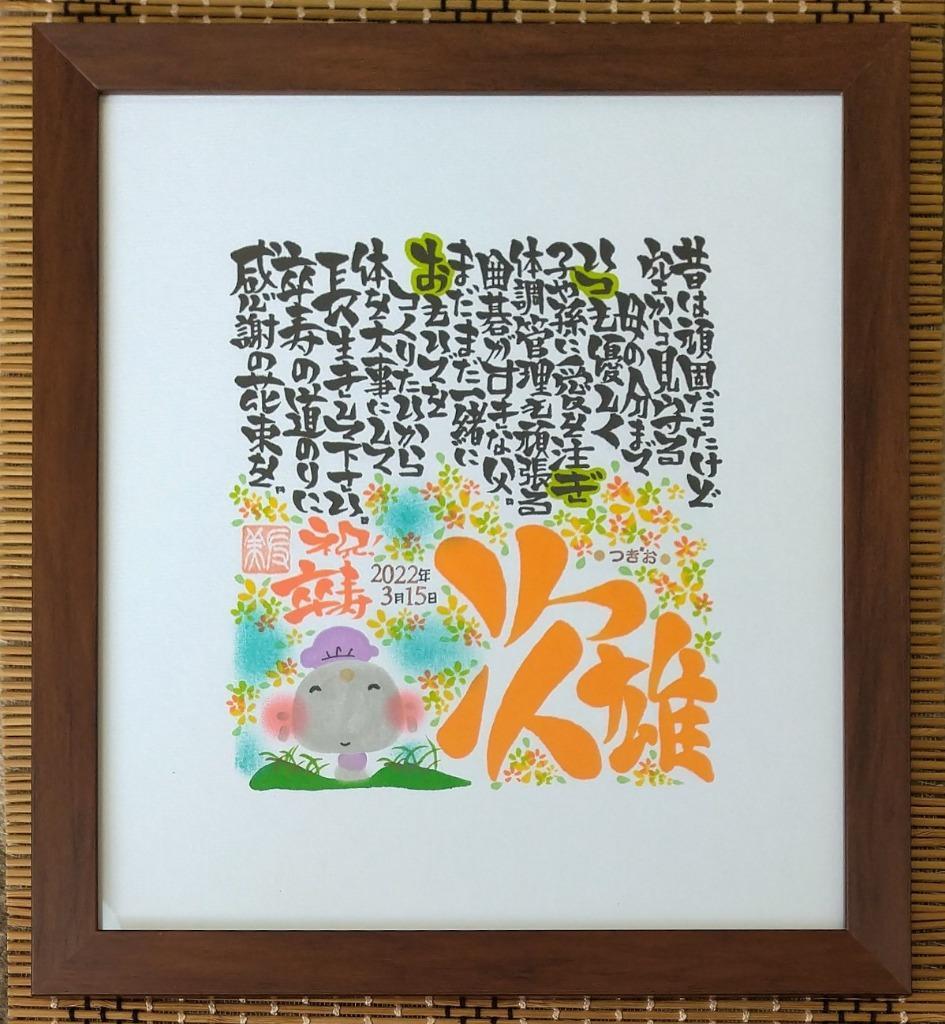 昔は頑固だったけど
空から見守る
母の分まで
いつも優しく
子や孫に愛を注ぎ
体調管理も頑張る
囲碁が好きな父。
まだまだ一緒に
おもいでを
つくりたいから
体を大事にして
長生きして下さい。
卒寿の道のりに
感謝の花束を。
つぎお
次雄
2022年
3月15日
祝!
卒寿